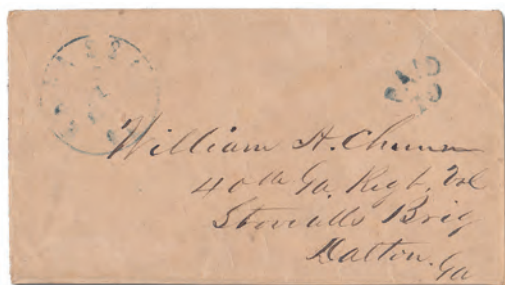 PAID
10
William A. Chunn
40th Ga. Regt. Vol
Stovalls Brig
Dalton. Ga